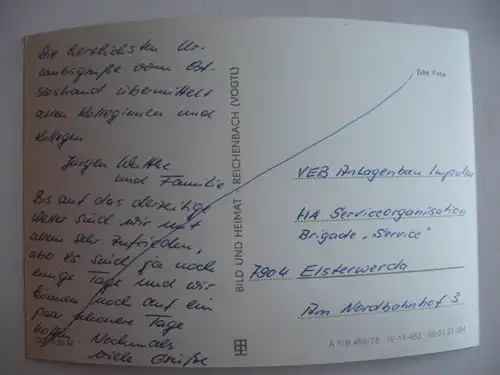 Die herzlichsten Ur-
laubsgrüße vom Ost-
seestrand übermittelt
allen Kolleginnen und
Kollegen
Jürgen
und Familie
Bis auf das derzeitige
Wetter sind wir mit
allem sehr zufrieden,
aber es sind ja noch
einige Tage und wir
können noch auf ein
paar schönere Tage
hoffen. Nochmals
viele Grüße
BILD UND HEIMAT REICHENBACH (VOGTL)
Echt Foto
VEB Anlagenbau Impulsa
HA Serviceorganisation
Brigade "Service"
7904 Elsterwerda
Am Nordbahnhof 3
A 1/B 489/78 IV-14-483